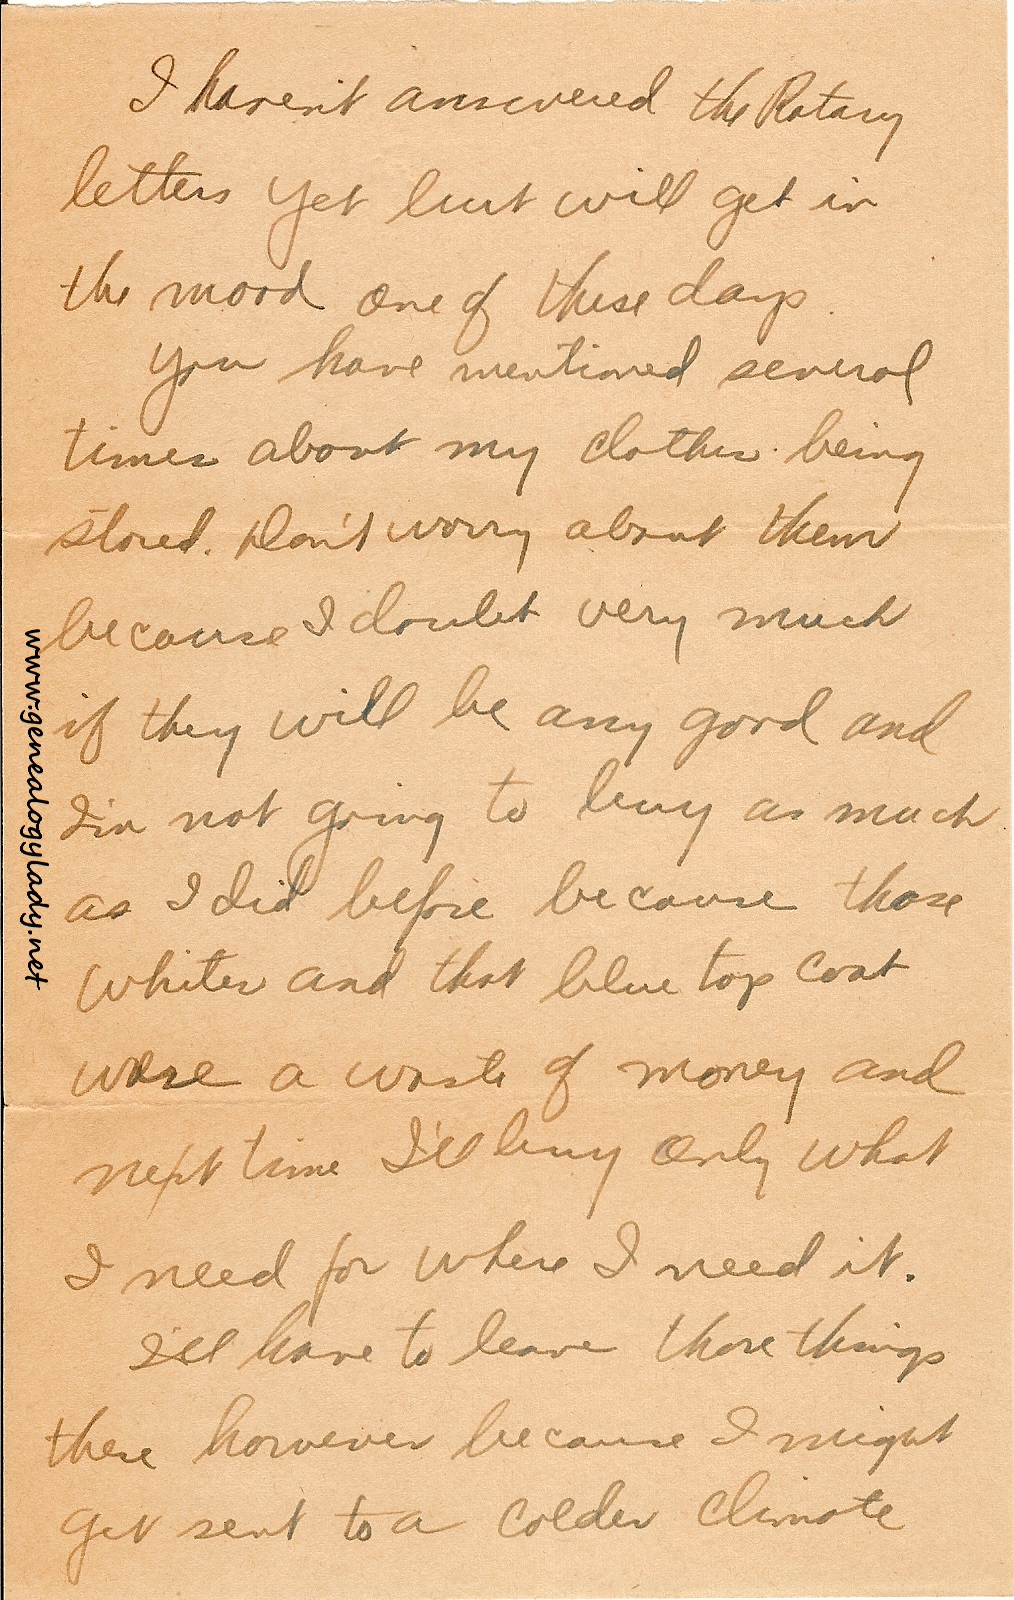 I haven't answered the Rotary
letters yet but will get in
the mood one of these days.
You have mentioned several
times about my clothes being
stored. Don't worry about them
because I doubt very much
if they will be any good and
I'm not going to buy as much
as I did before because those
whites and that blue top coat
were a waste of money and
next time I'll buy only what
I need for where I need it.
I'll have to leave those things
there however because I might
get sent to a colder climate
www.genealogylady.net